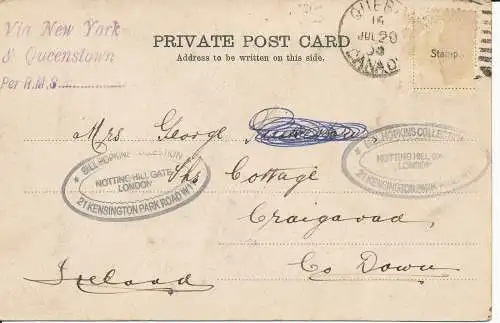 Via New York
& Queenstown
Per R.M.S.
PRIVATE POST CARD
Address to be written on this side.
Stamp.
15
JUL 20
CANADA
Mrs George
BILL HOPKINS COLLECTION
NOTTING HILL GATE
LONDON
21 KENSINGTON PARK ROAD W11
HOPKINS COLLECTION
NOTTING HILL GA
LONDON
21 KENSINGTON PARK
The Cottage
Craigavad
Ireland
Co Down